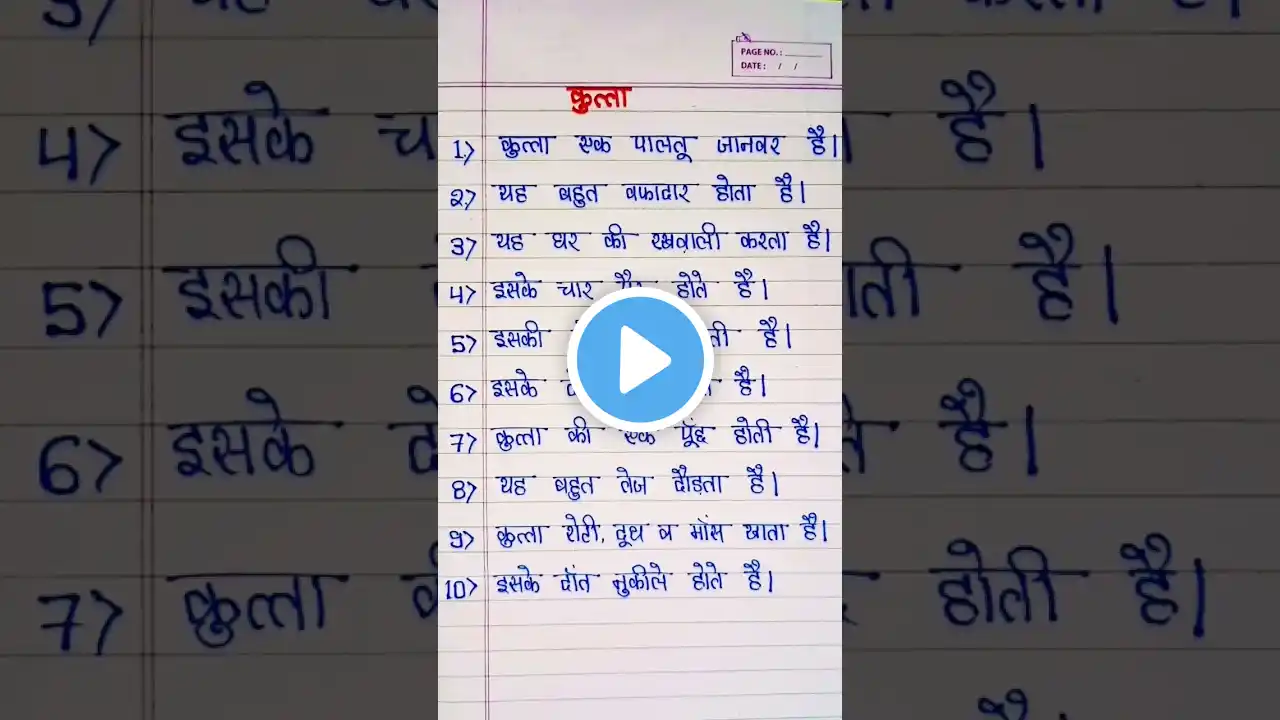 PAGE NO.:
DATE: / /
कुत्ता
1) कुत्ता एक पालतू जानवर है।
2) यह बहुत वफादार होता है।
3) यह घर की रखवाली करता है।
4) इसके चार होते है।
5) इसकी है।
6) इसके है।
7) कुत्ता की एक पूंछ होती है।
8) यह बहुत तेज दौड़ता है।
9) कुत्ता रोटी, दूध व माँस खाता है।
10) इसके दाँत नुकीले होते है।